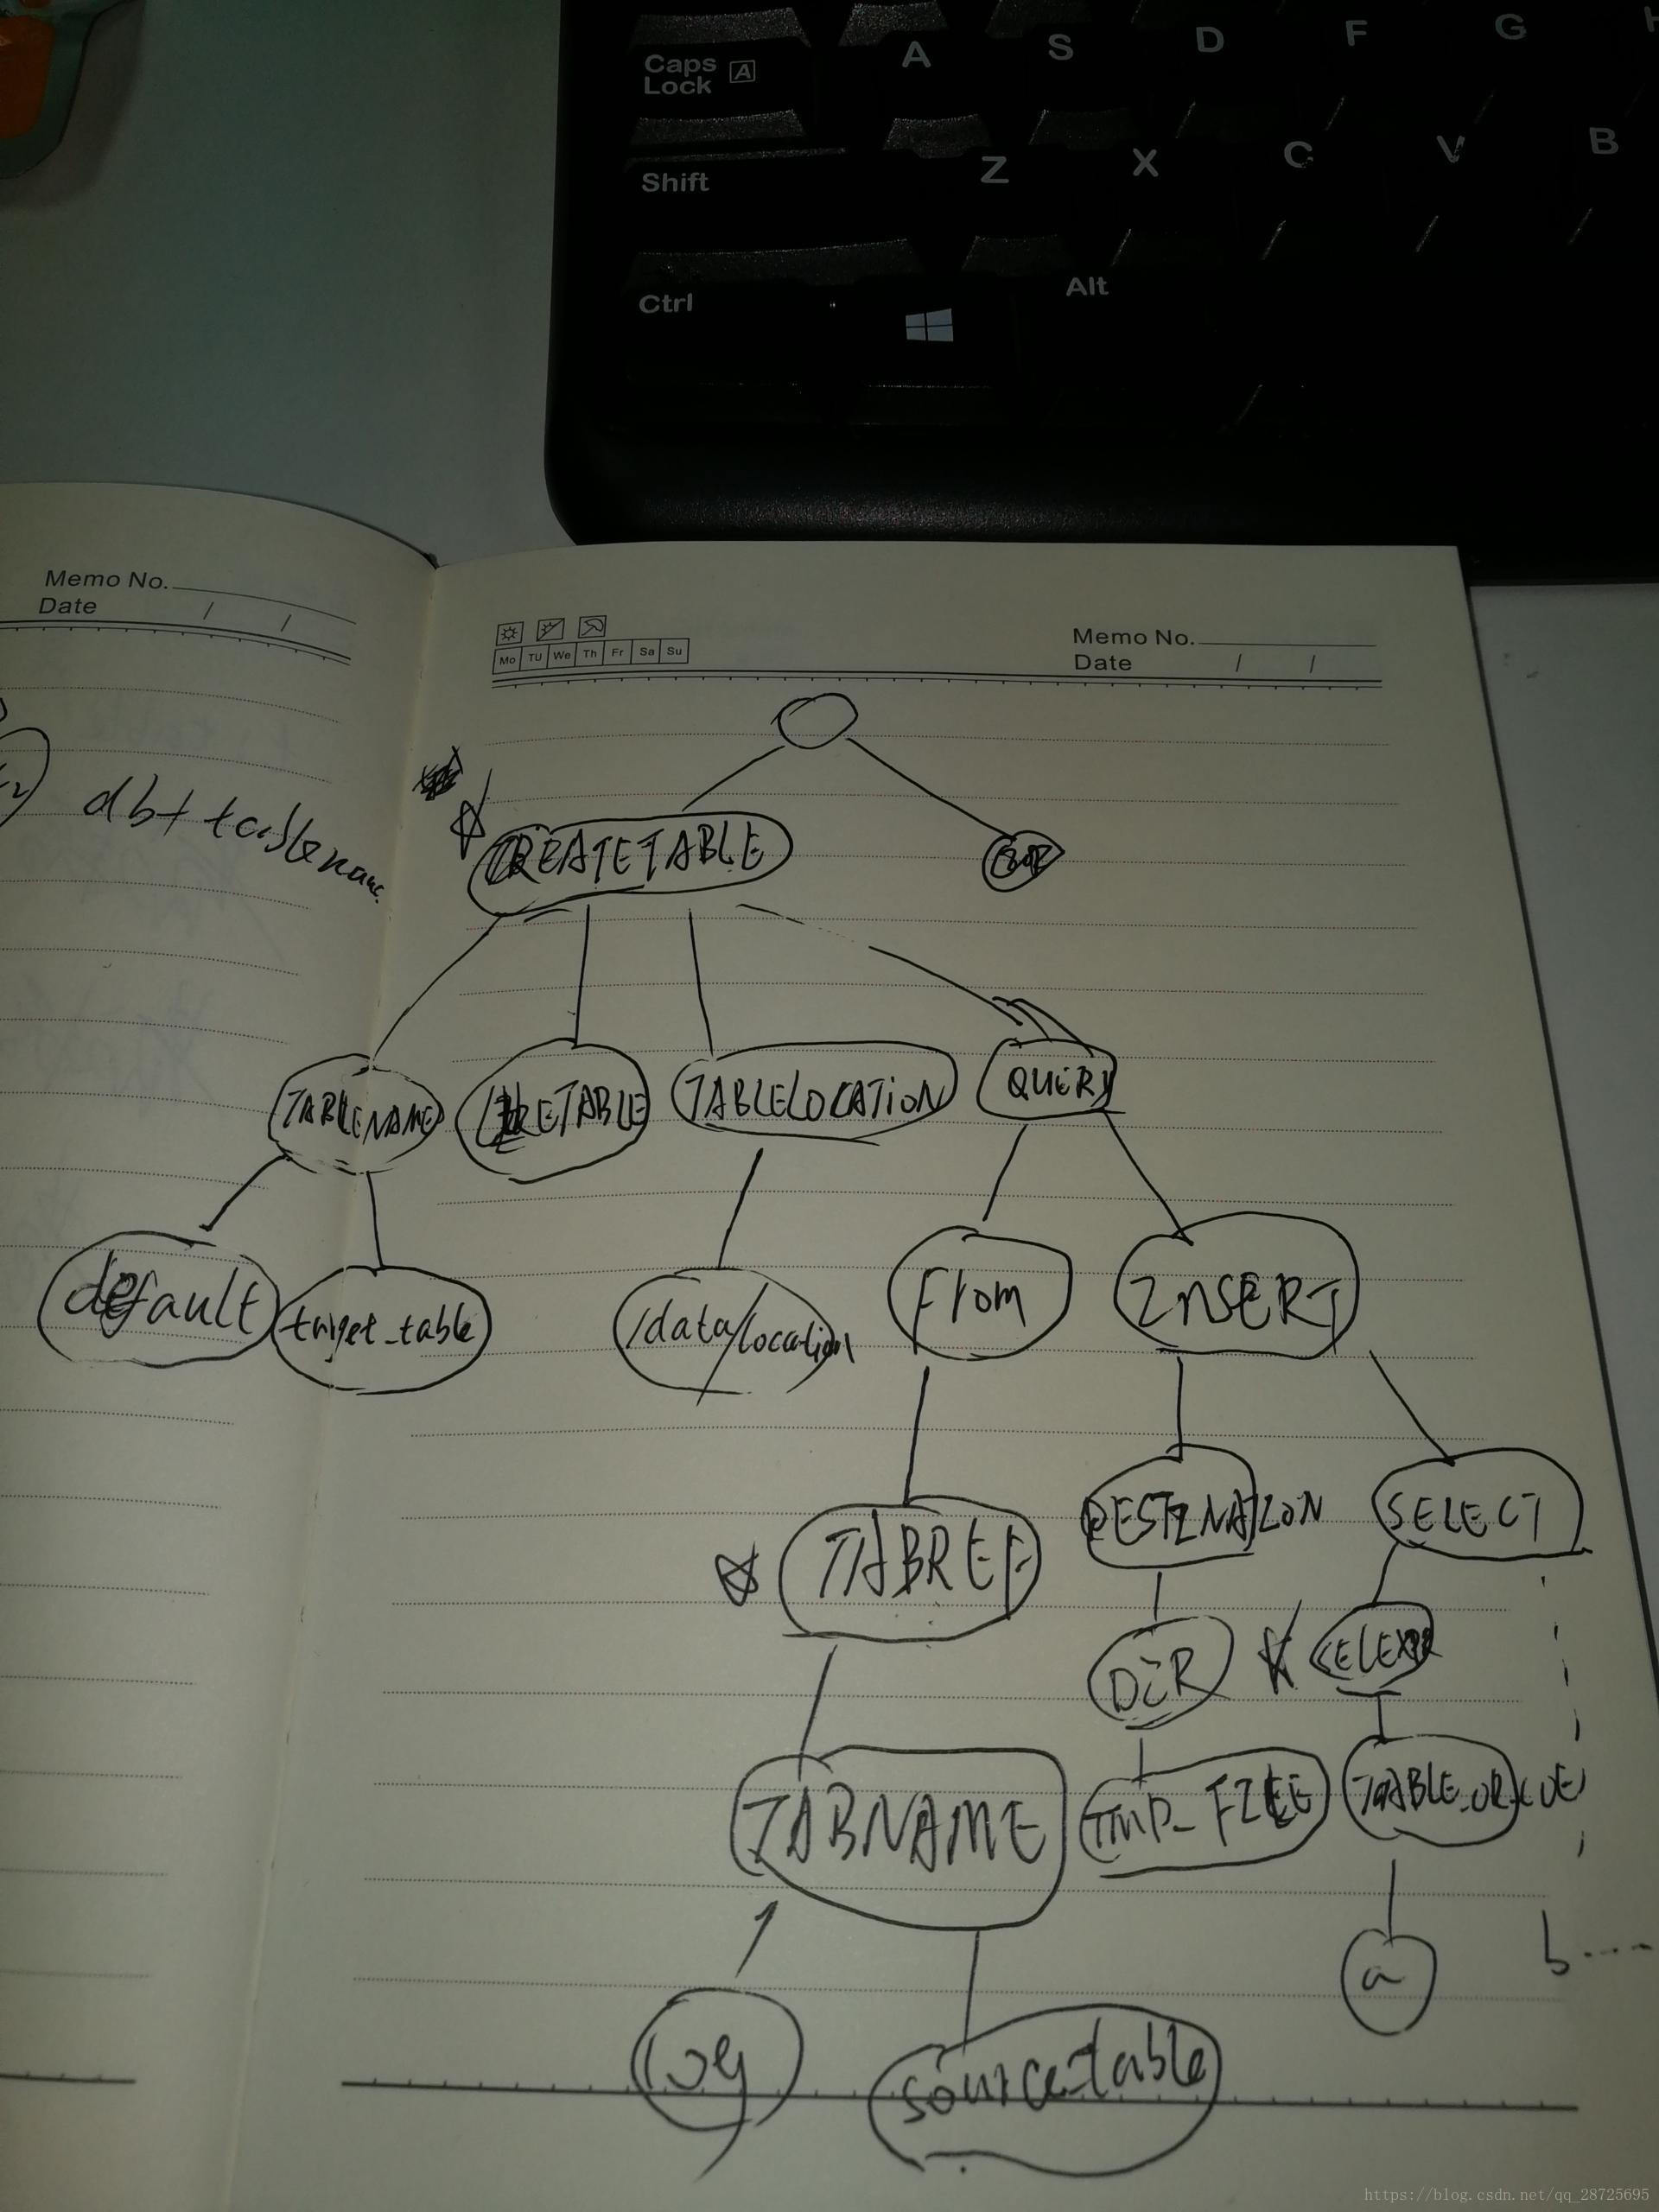 Caps
Lock
A
A
S
D
F
G
Shift
Z
X
C
V
B
Ctrl
Alt
Memo No.
Date / /
Mo TU We Th Fr Sa Su
Memo No.
Date / /
db+ tablename
CREATETABLE
TABLENAME
TABLELOCATION
QUERY
default
target_table
/data/location
From
INSERT
TABREF
DESTINATION
SELECT
DIR
SELEXPR
TABNAME
TMP_FILE
a
b
log
source_table
https://blog.csdn.net/qq_28725695